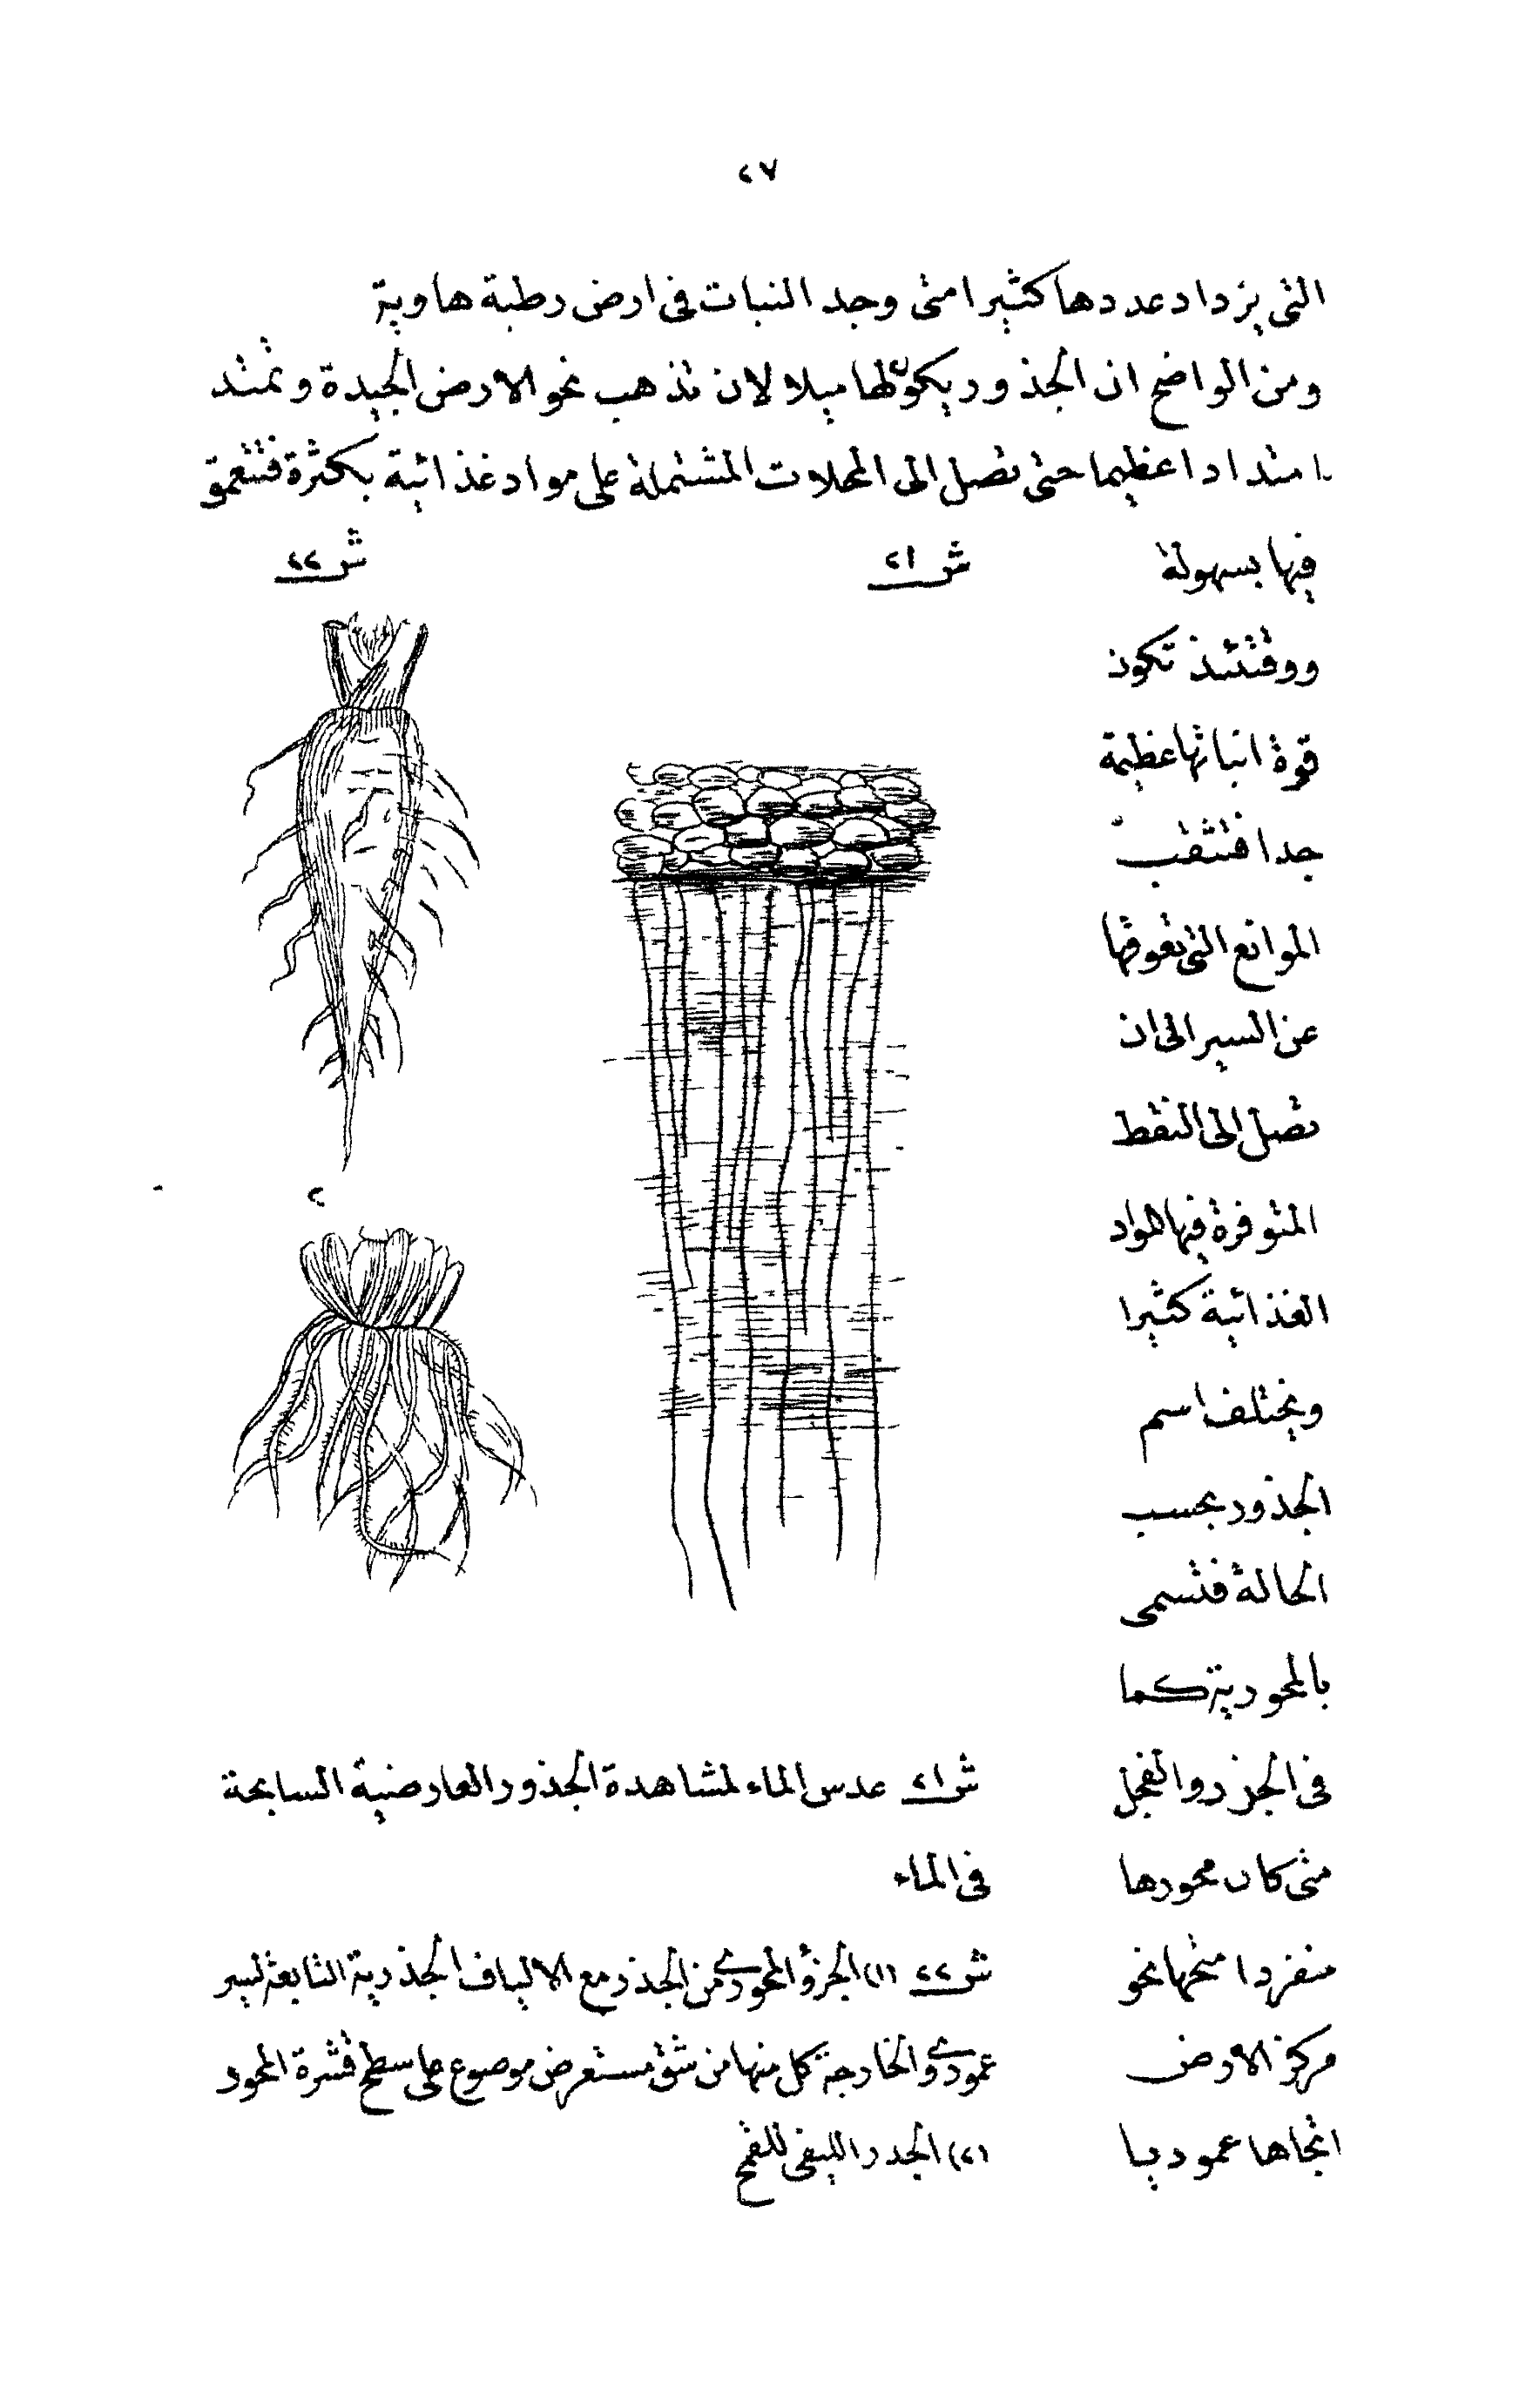 ٢٧
التى يزداد عددها كثيرا متى وجد النبات فى ارض رطبة هاوية
ومن الواضح ان الجذور يكون لها ميلا لان تذهب نحو الارض الجيدة وتمتد
امتدادا عظيما حتى تصل الى المحلات المشتملة على مواد غذائية بكثرة فتتعمق
فيها بسهولة
ووقتئذ تكون
قوة انباتها عظيمة
جدا فتثقب
الموانع التى تعوقها
عن السير الى ان
تصل الى النقط
المتوفرة فيها المواد
الغذائية كثيرا
ويختلف اسم
الجذور بحسب
الحالة فتسمى
بالمحورية كما
فى الجزر والفجل
متى كان محورها
منفردا متجها نحو
مركز الارض
اتجاها عموديا
ش ٢١
ش ٢٢
٢
ش ٢١ عدس الماء لمشاهدة الجذور العارضية السابحة
فى الماء
ش ٢٢ (١) الجزؤ المحورى من الجذر مع الالياف الجذرية التابعة لسير
عمودى والخارجة كل منها من شق مستعرض موضوع على سطح قشرة المحور
(٢) الجدر الليفى للقمح